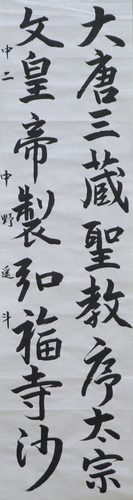 大唐三蔵聖教序太宗
文皇帝製弘福寺沙
中二 中野遥斗